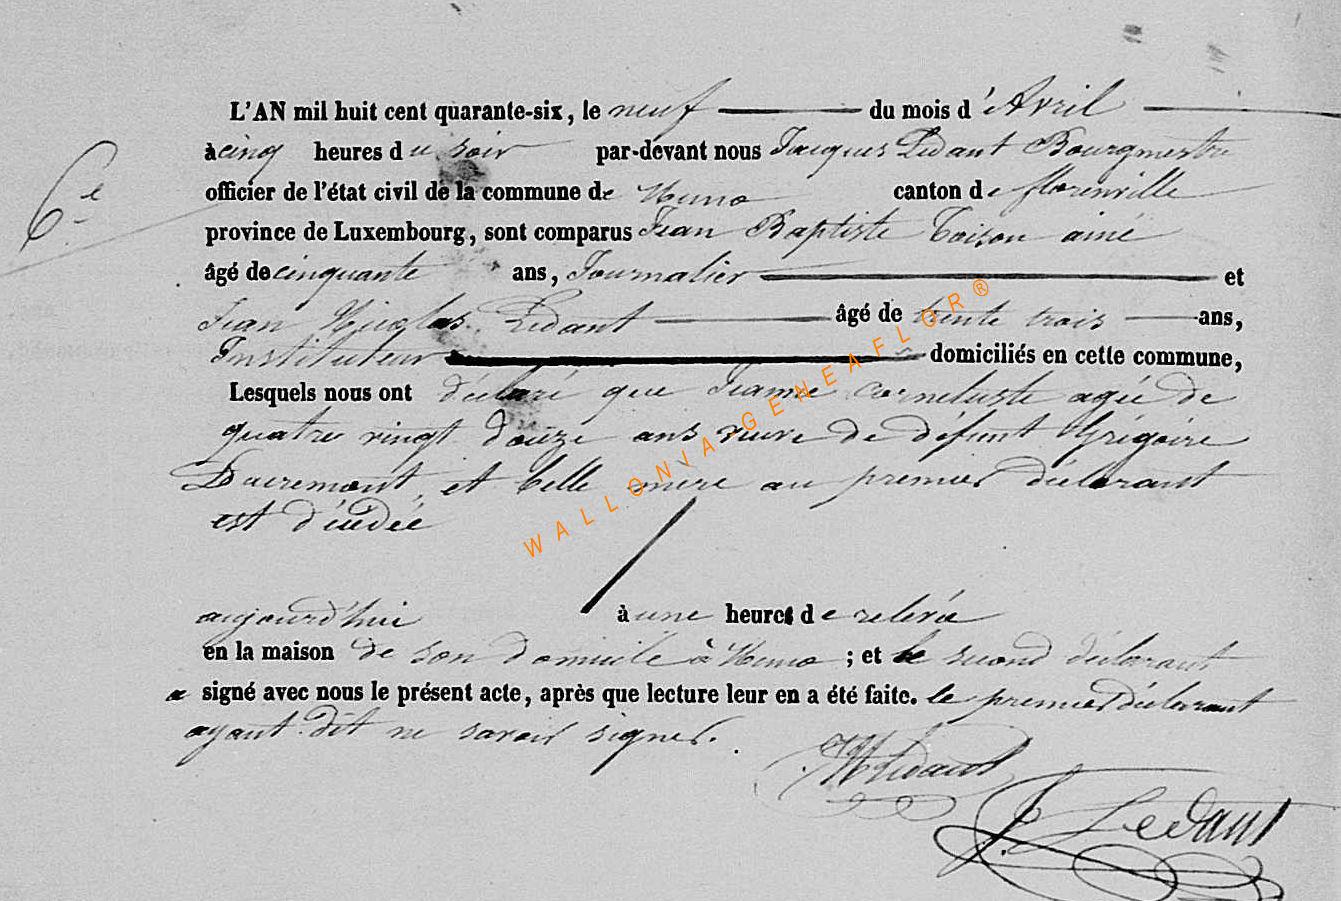 L'AN mil huit cent quarante-six, le neuf du mois d'Avril
6e
à cinq heures du soir par-devant nous Jacques Ledant Bourgmestre
officier de l'état civil de la commune de Muno canton de florenville
province de Luxembourg, sont comparus Jean Baptiste Toison ainé
âgé de cinquante ans, Journalier et
Jean Nicolas Ledant âgé de trente trois ans,
Instituteur domiciliés en cette commune,
Lesquels nous ont déclaré que Jeanne agée de
quatre vingt douze ans veuve de défunt Grégoire
Ducremont, et belle mère au premier déclarant
est décédée
WALLONIA-GENEAFLOR®
aujourd'hui à une heures de relevée
en la maison de son domicile à Muno ; et le second déclarant
a signé avec nous le présent acte, après que lecture leur en a été faite. le premier déclarant
ayant dit ne savoir signer.
Ledant
J. Ledant